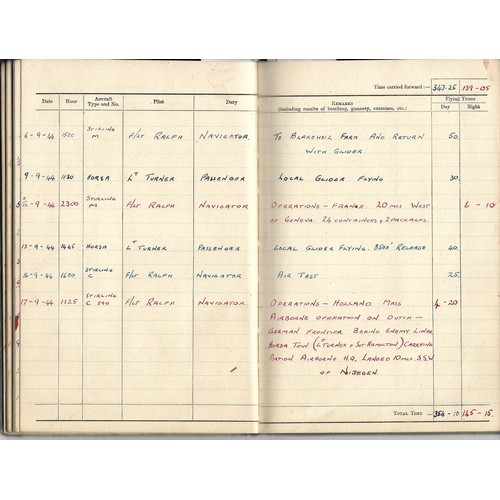 Time carried forward :— 347-25 139-05
Date Hour Aircraft Type and No. Pilot Duty Remarks (including results of bombing, gunnery, exercises, etc.) Flying Times
Day Night
6-9-44 1500 Stirling M F/Lt Ralph Navigator. To Blakehill Farm And Return 50.
With Glider
9-9-44 1130 Horsa Lt Turner Passenger Local Glider Flying 30.
-9-44 2300 Stirling M F/Lt Ralph Navigator Operations – France. 20 mls West 6-10
of Geneva. 24 containers, & 2 packages.
13-9-44 1445 Horsa Lt Turner Passenger Local Glider Flying. 3500' Release 40.
16-9-44 1600 Stirling C F/Lt Ralph Navigator Air Test 25.
17-9-44 1125 Stirling C F/Lt Ralph Navigator. Operations – Holland. Mass 4-20
Airborne operation on Dutch –
German Frontier Behind Enemy Lines.
Horsa Tow (Lt Turner & Sgt Hamilton) Carrying
Airborne H.Q. Landed 10 mls S.S.W
of Nijmegen.
Total Time — 354-10 145-15.